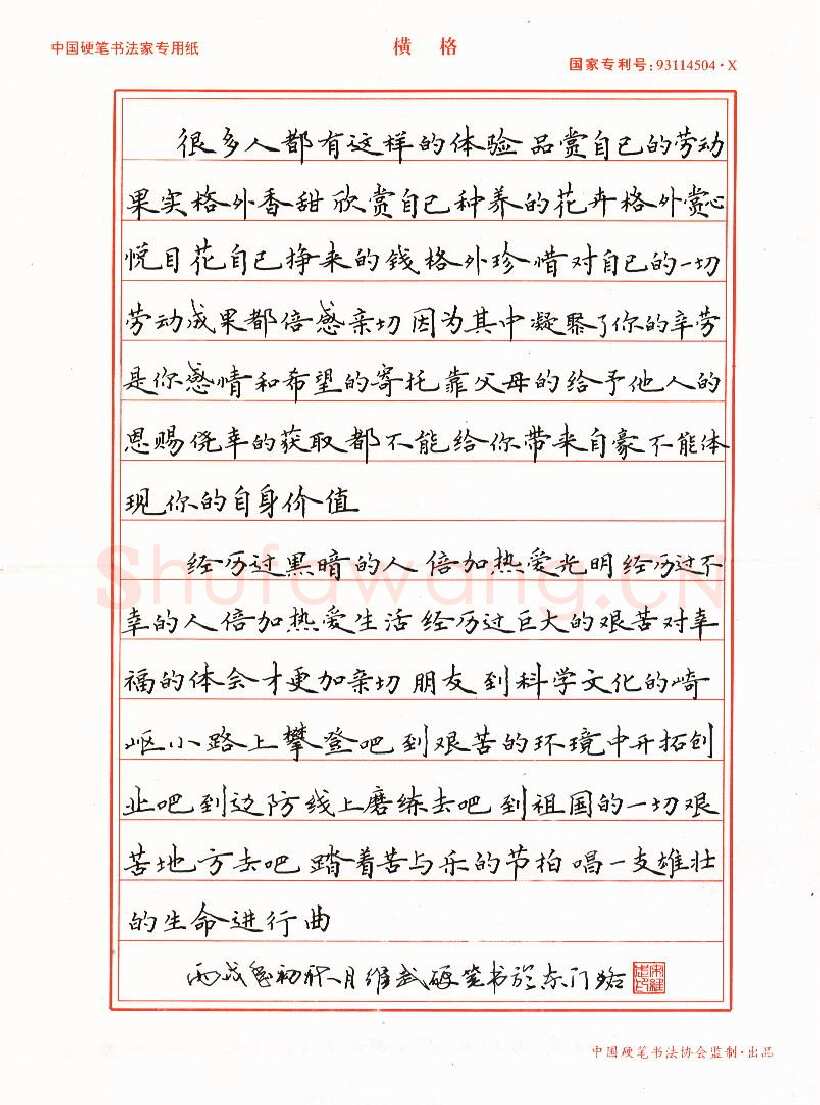 中国硬笔书法家专用纸
横格
国家专利号:93114504·X
很多人都有这样的体验 品赏自己的劳动
果实格外香甜 欣赏自己种养的花卉格外赏心
悦目 花自己挣来的钱格外珍惜 对自己的一切
劳动成果都倍感亲切 因为其中凝聚了你的辛劳
是你感情和希望的寄托 靠父母的给予他人的
恩赐 侥幸的获取都不能给你带来自豪 不能体
现你的自身价值
经历过黑暗的人 倍加热爱光明 经历过不
幸的人倍加热爱生活 经历过巨大的艰苦对幸
福的体会才更加亲切 朋友 到科学文化的崎
岖小路上攀登吧 到艰苦的环境中开拓创
业吧 到边防线上磨练去吧 到祖国的一切艰
苦地方去吧 踏着苦与乐的节拍 唱一支雄壮
的生命进行曲
丙戌年初秋月维武硬笔书於东门路
Shufawang.CN
中国硬笔书法协会监制·出品